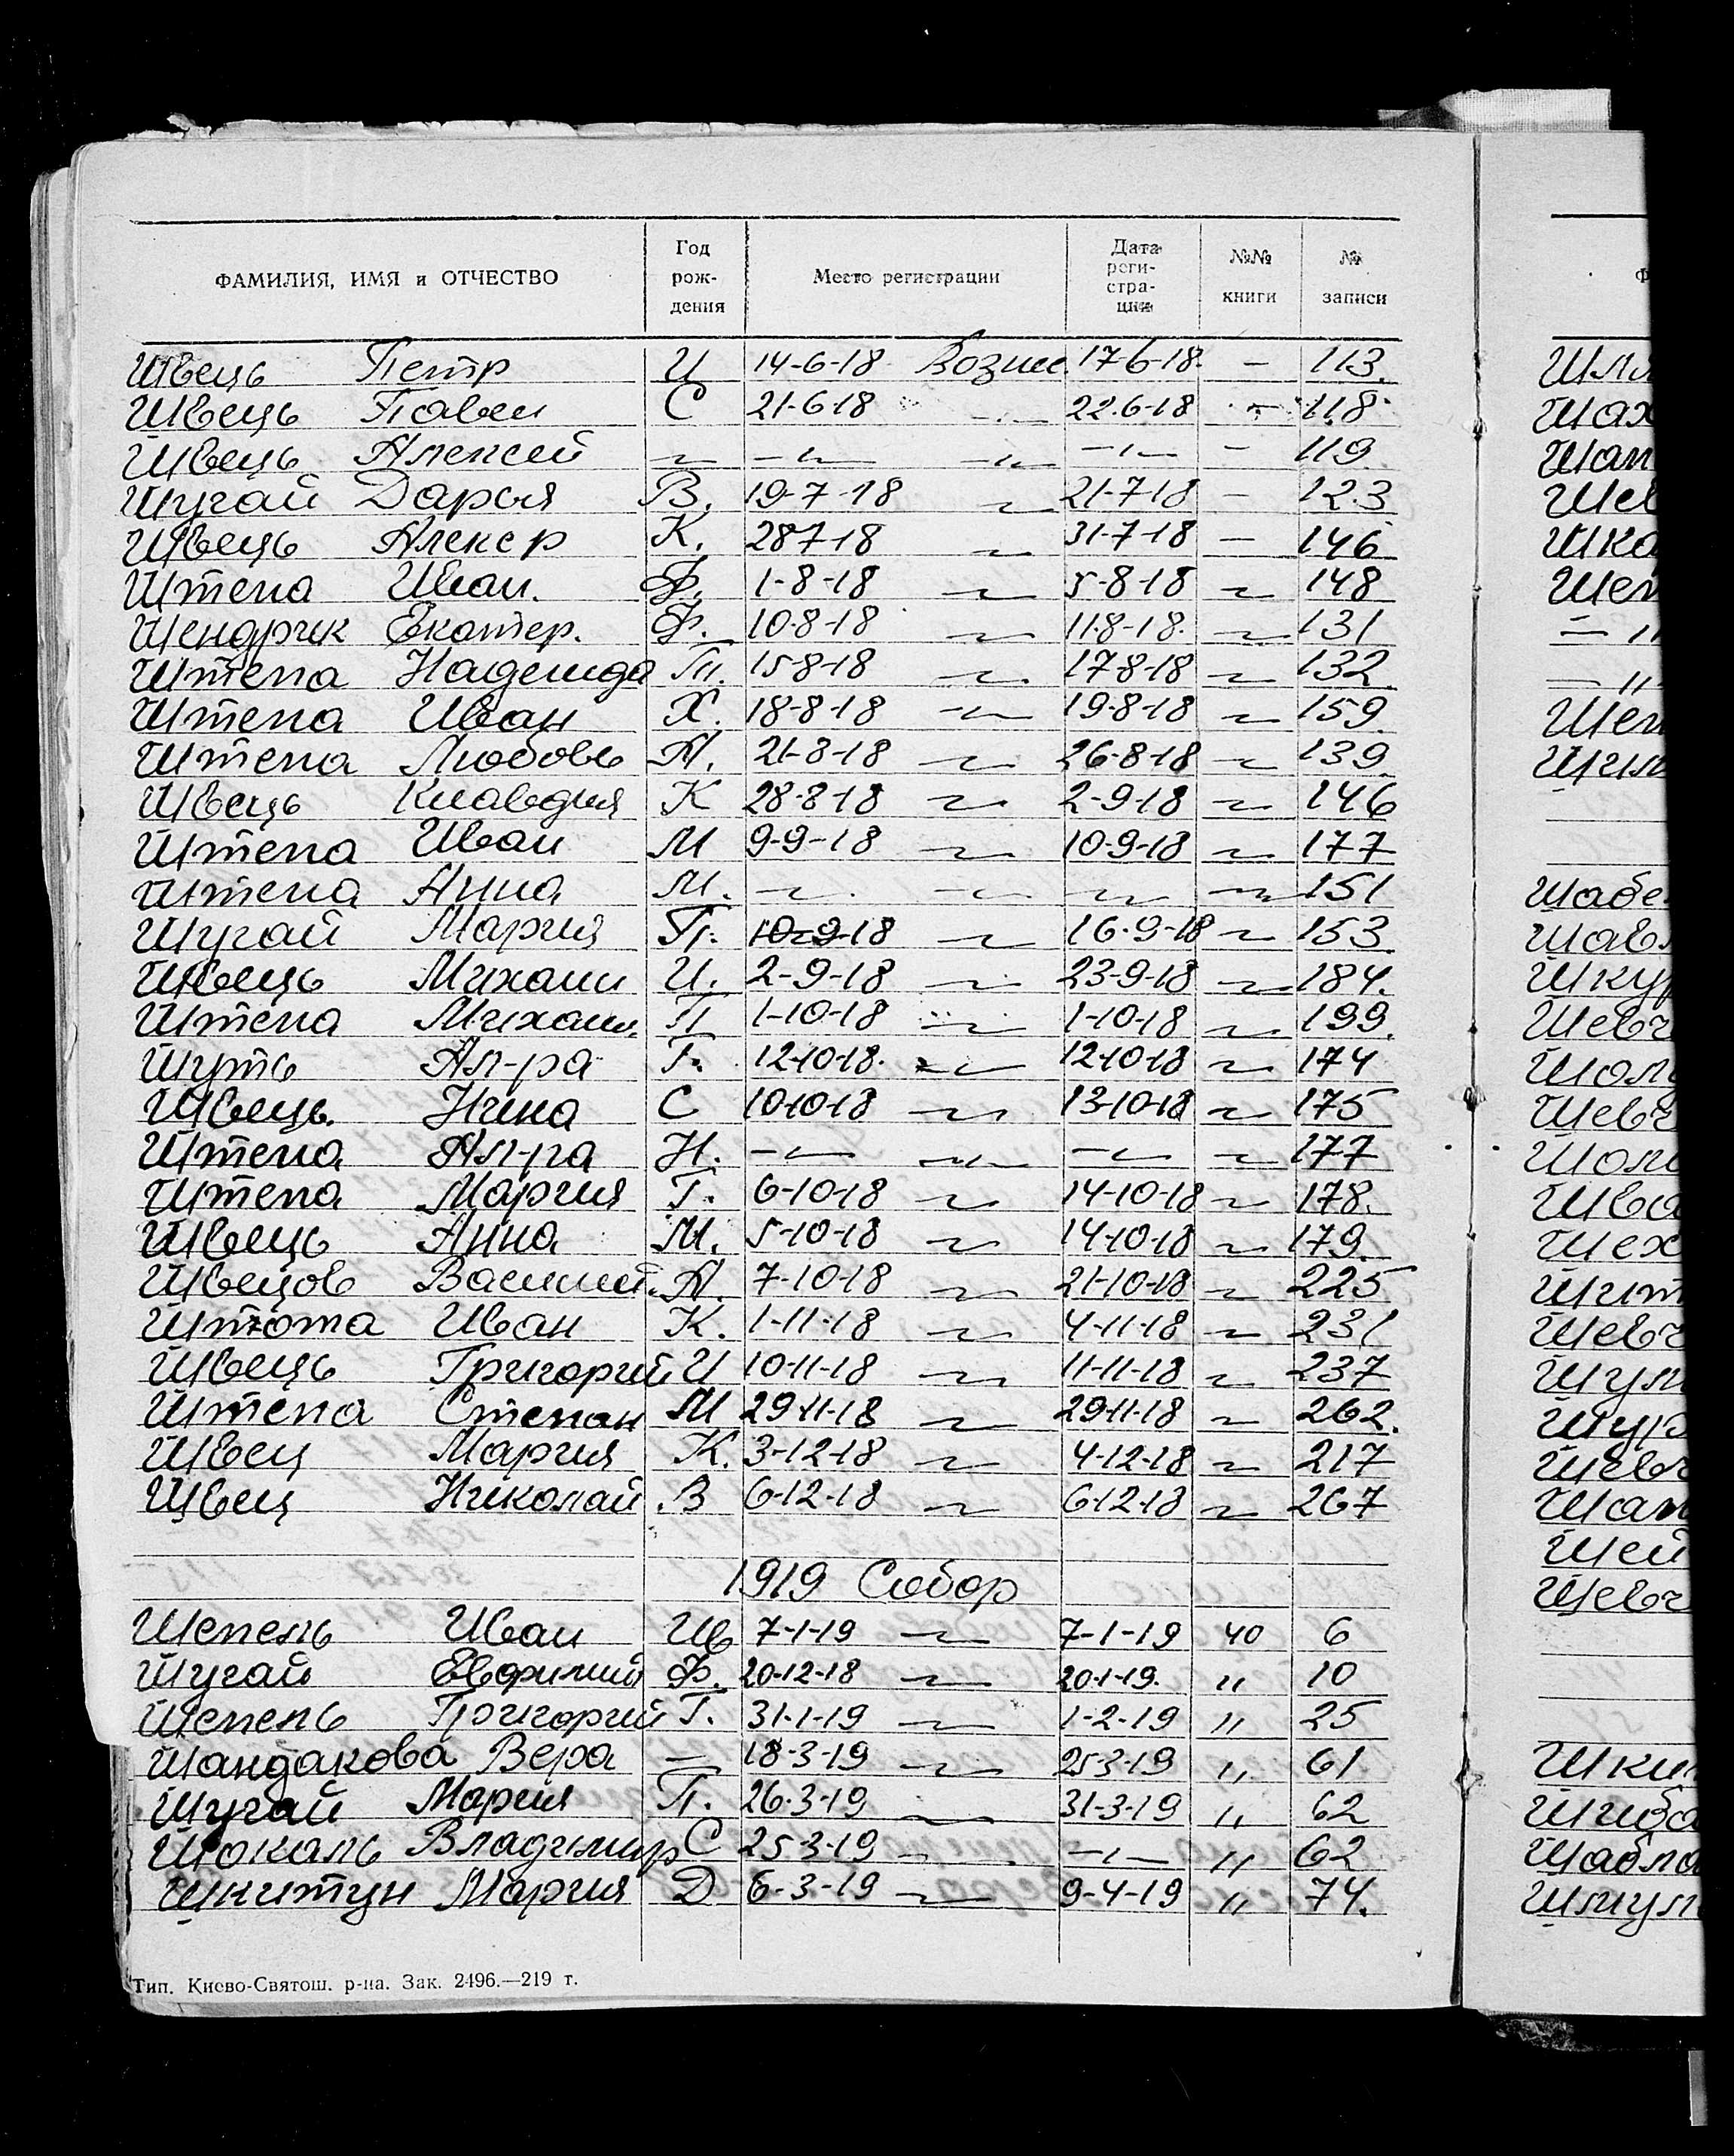 ФАМИЛИЯ, ИМЯ и ОТЧЕСТВО Год рож-дения Место регистрации Дата реги-стра-ции №№ книги № записи
Швець Петр И 14-6-18 Вознес. 17-6-18. - 113.
Швець Павел С 21-6-18 -"- 22.6-18 - 118
Швець Алексей -"- -"- -"- -"- - 119
Шугай Дарья В. 19-7-18 -"- 21-7-18 - 123
Швець Алекср К. 28718 -"- 31-7-18 - 146
Штепа Иван. Ф. 1-8-18 -"- 5-8-18 -"- 148
Шендрик Екатер. Ф. 10-8-18 -"- 11.8-18. -"- 131
Штепа Надежда П. 15-8-18 -"- 17-8-18 -"- 132
Штепа Иван Х. 18-8-18 -"- 19-8-18 -"- 159
Штепа Любовь А. 21-8-18 -"- 26-8-18 -"- 139
Швець Клавдия К 28-8-18 -"- 2-9-18 -"- 146
Штепа Иван М 9-9-18 -"- 10-9-18 -"- 177
Штепа Анна М. -"- -"- -"- -"- 151
Шугай Мария П. 10-9-18 -"- 16-9-18 -"- 153
Швець Михаил И. 2-9-18 -"- 23-9-18 -"- 184.
Штепа Михаил. П 1-10-18 -"- 1-10-18 -"- 199.
Шуть Ал-ра Г. 12-10-18. -"- 12-10-18 -"- 174
Швець. Нина С 10-10-18 -"- 13-10-18 -"- 175
Штепа Ал-ра Н. -"- -"- -"- -"- 177
Штепа Мария Г. 6-10-18 -"- 14-10-18 -"- 178.
Швець Анна М. 5-10-18 -"- 14-10-18 -"- 179
Швецов Василий А. 7-10-18 -"- 21-10-18 -"- 225
Иван К. 1-11-18 -"- 4-11-18 -"- 231
Швець Григорий И 10-11-18 -"- 11-11-18 -"- 237
Штепа Степан М 29-11-18 -"- 29-11-18 -"- 262.
Швец Мария К. 3-12-18 -"- 4-12-18 -"- 217
Швец Николай В 6-12-18 -"- 6-12-18 -"- 267
1919 Собор
Шепель Иван Ив 7-1-19 -"- 7-1-19 40 6
Шугай Евфимий Ф. 20-12-18 -"- 20-1-19. " 10
Шепель Григорий Г. 31-1-19 -"- 1-2-19 " 25
Шандакова Вера - 18-3-19 -"- 25-3-19 " 61
Шугай Мария П. 26-3-19 -"- 31-3-19 " 62
Шокаль Владимир С 25-3-19 -"- -"- " 62
Шкитун Мария Д 6-3-19 -"- 9-4-19 " 74.
Тип. Киево-Святош. р-на. Зак. 2496.—219 т.